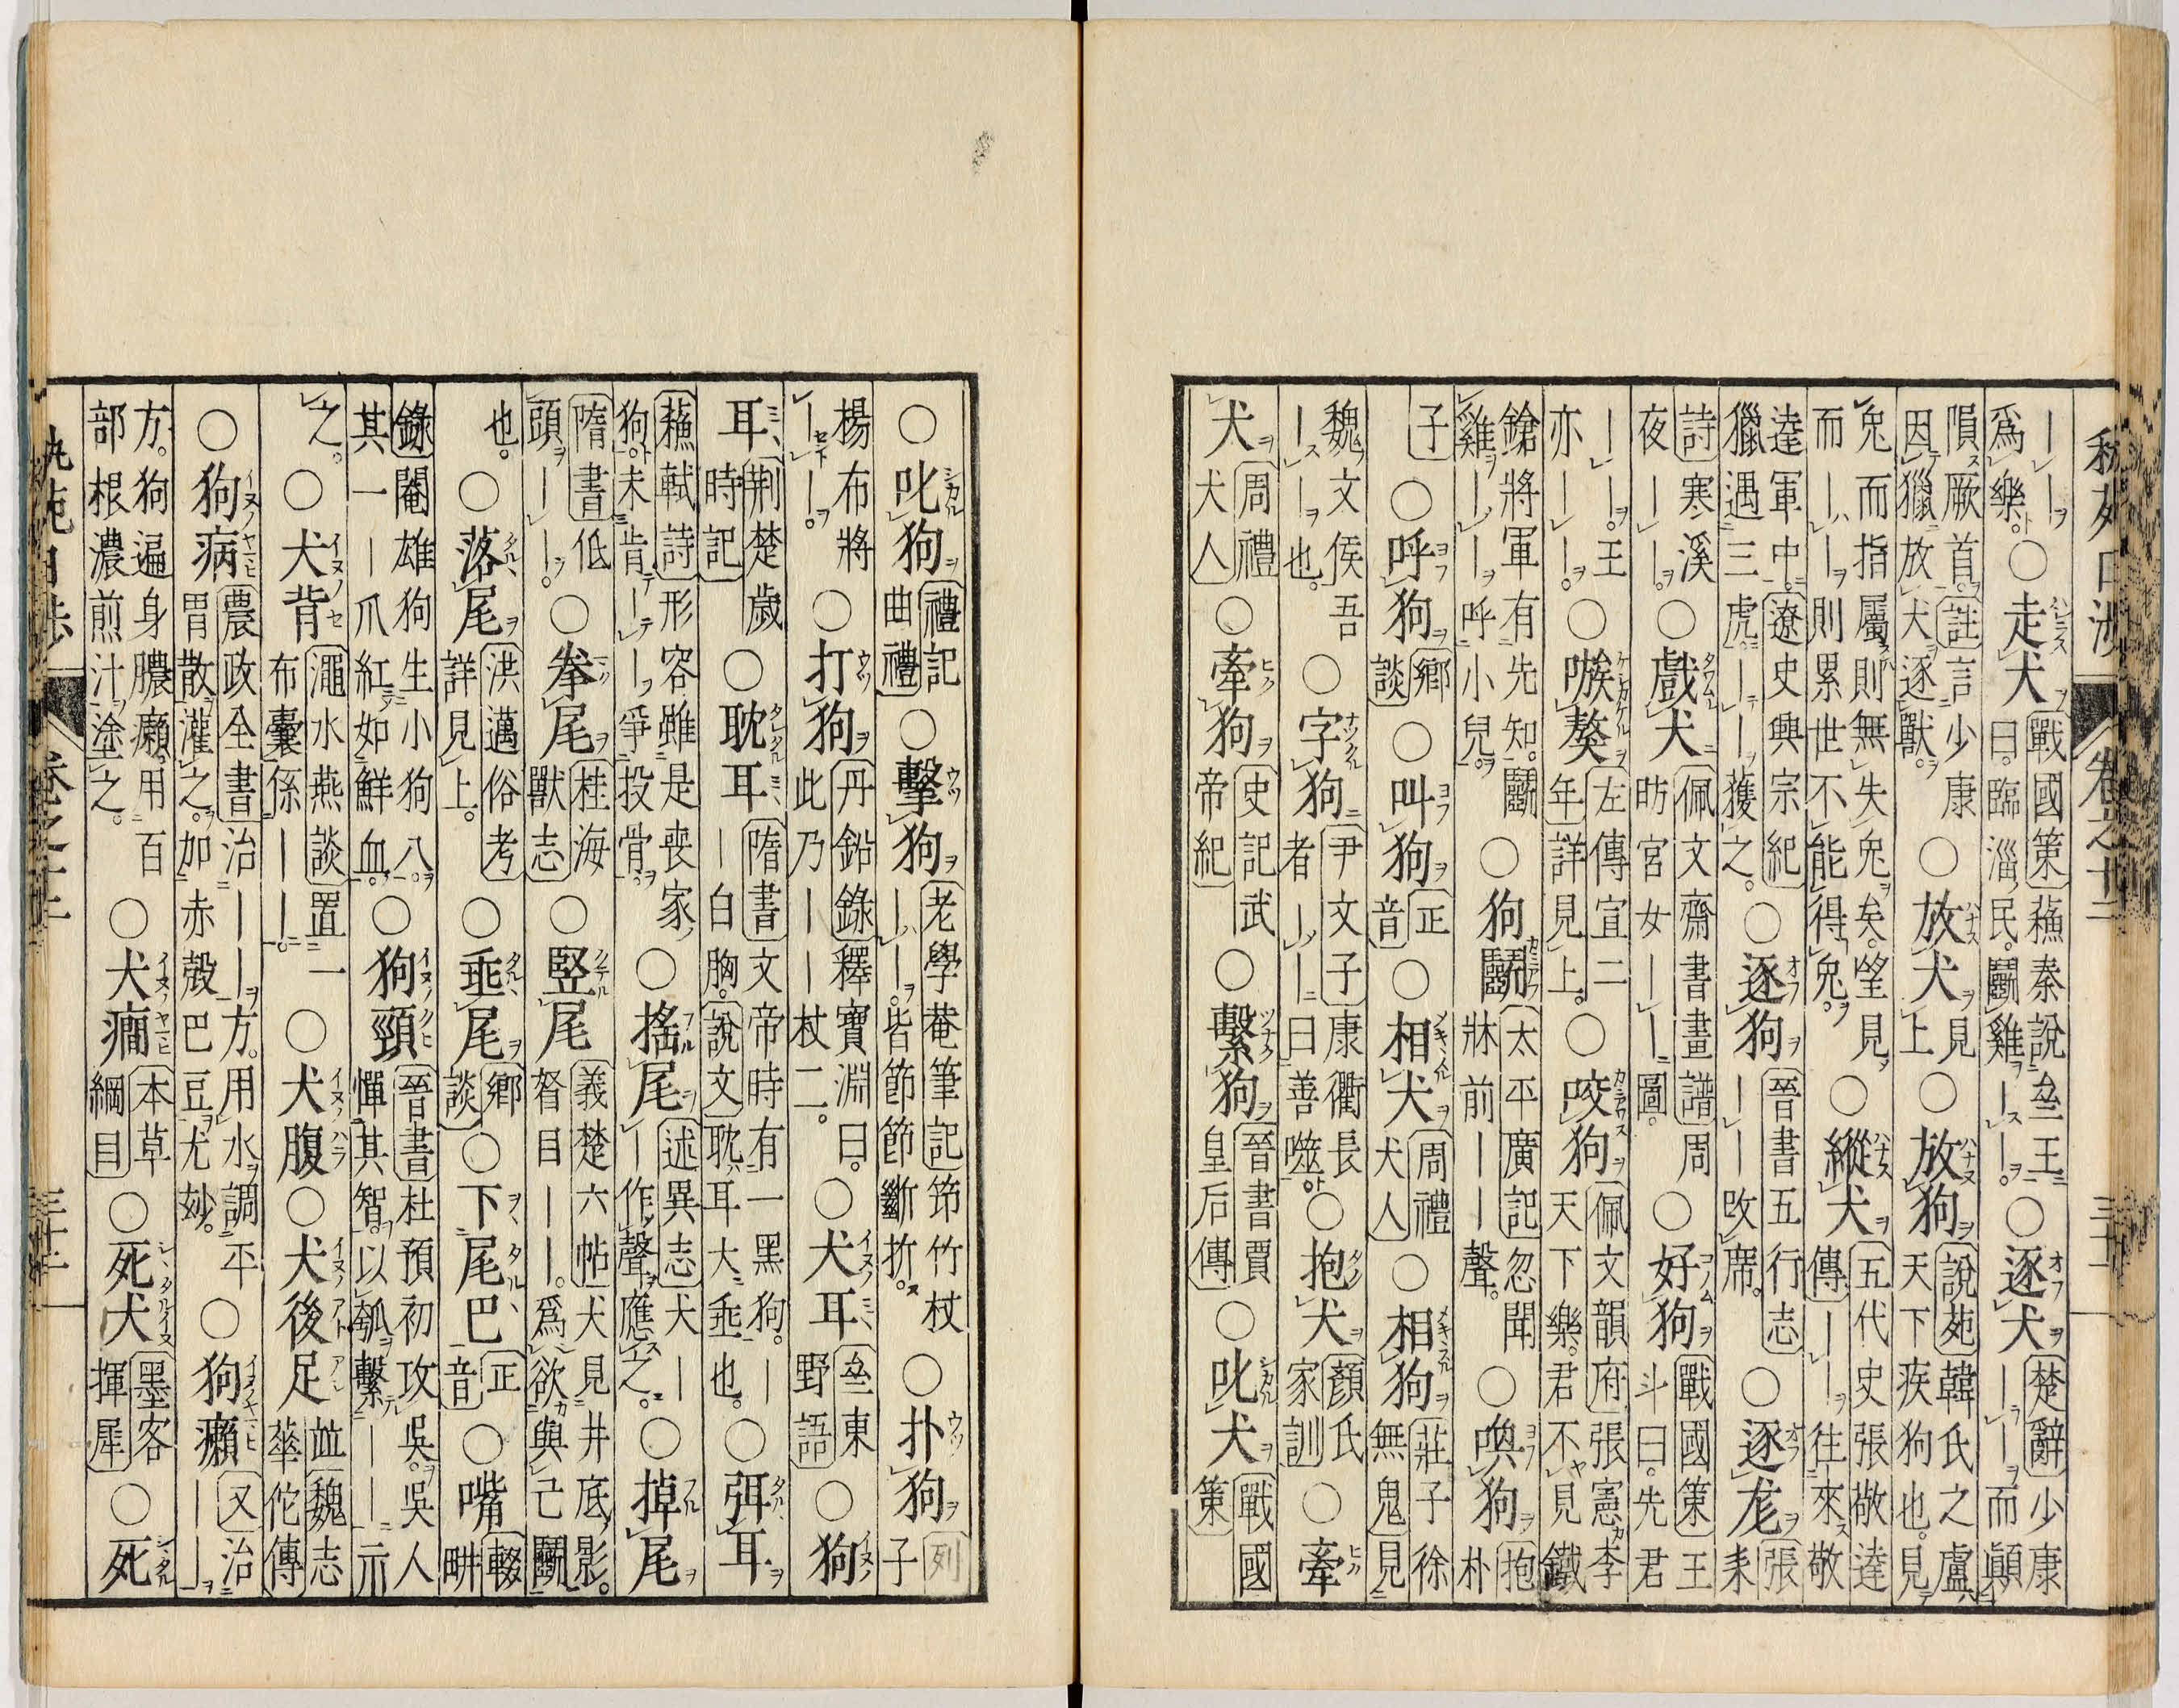 ｜｜爲樂○走犬戰國策蘇秦說亝王曰臨淄民鬭雞｜｜○逐犬楚辭少康｜｜而顚
隕厥首註言少康因獵放犬逐獸○放犬見上○放狗說苑韓氏之盧天下疾狗也見
兔而指屬則無失兔矣望見而｜｜則累世不能得兔○縱犬五代史張敬達傳｜｜往來敬
達軍中遼史興宗紀獵遇三虎｜｜獲之○逐狗晉書五行志｜｜攺席○逐尨張耒
詩寒溪夜｜｜○戲犬佩文齋書畫譜周昉宮女｜｜圖○好狗戰國策王斗曰先君
｜｜王亦｜｜○嗾獒左傳宣二年詳見上○咬狗佩文韻府張憲李天下樂君不見鐵
鎗將軍有先知鬭雞｜｜呼小兒○狗鬭太平廣記忽聞牀前｜｜聲○喚狗抱朴
子○呼狗鄉談○叫狗正音○相犬周禮犬人○相狗莊子徐無鬼見
魏文侯吾｜｜也○字狗尹文子康衢長者｜｜曰善噬○抱犬顏氏家訓○牽
犬周禮犬人○牽狗史記武帝紀○繫狗晉書賈皇后傳○叱犬戰國策
○叱狗禮記曲禮○擊狗老學菴筆記笻竹杖｜｜皆節節斷折○扑狗列子
楊布將｜｜○打狗丹鉛錄釋寶淵曰此乃｜｜杖二○犬耳亝東野語○狗
耳荆楚歲時記○耽耳隋書文帝時有一黑狗｜｜白胸說文耽耳大垂也○弭耳
蘇軾詩形容雖是喪家狗未肯｜｜爭投骨○搖尾述異志犬｜｜作聲應之○掉尾
隋書低頭｜｜○拳尾桂海獸志○竪尾義楚六帖犬見井底影目｜｜爲欲與己鬭
也○落尾洪邁俗考詳見上○垂尾鄉談○下尾巴正音○嘴輟畊
錄闔雄狗生小狗八其一｜爪紅如鮮血○狗頸晉書杜預初攻吳吳人憚其智以瓠繫｜｜示
之○犬背澠水燕談置一布囊係｜｜○犬腹○犬後足並魏志華佗傳
○狗病農政全書治｜｜方用水調平胃散灌之加赤殼巴豆尤妙○狗癩又治｜｜
方狗遍身膿癩用百部根濃煎汁塗之○犬癎本草綱目○死犬墨客揮犀○死